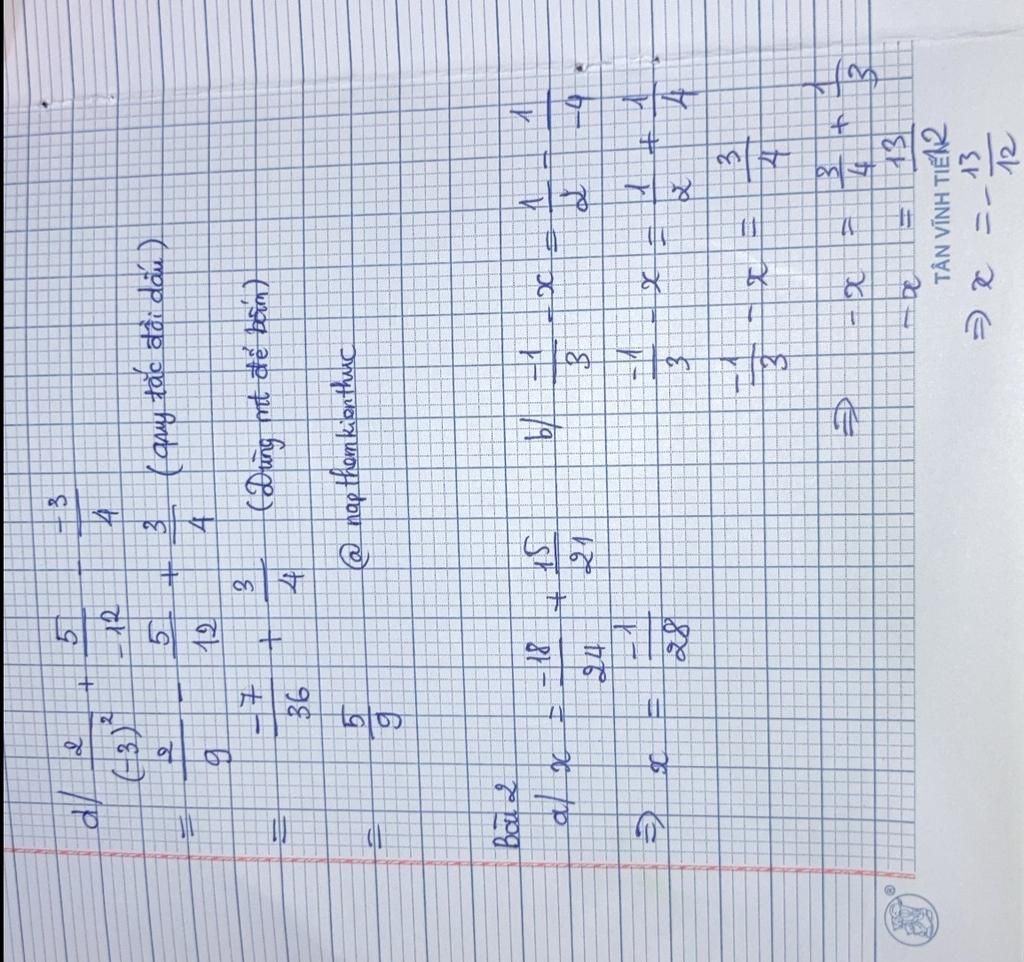 d/ 2/(-3)² + 5/-12 - -3/4
= 2/9 - 5/12 + 3/4 (quy tắc đổi dấu)
= -7/36 + 3/4 (Dùng mt để bấm)
= 5/9 @napthemkienthuc
Bài 2
a/ x = -18/24 + 15/21
=> x = -1/28
b/ -1/3 - x = 1/2 - 1/-4
-1/3 - x = 1/2 + 1/4
-1/3 - x = 3/4
=> -x = 3/4 + 1/3
-x = 13/12
TÂN VĨNH TIẾN
=> x = -13/12
®